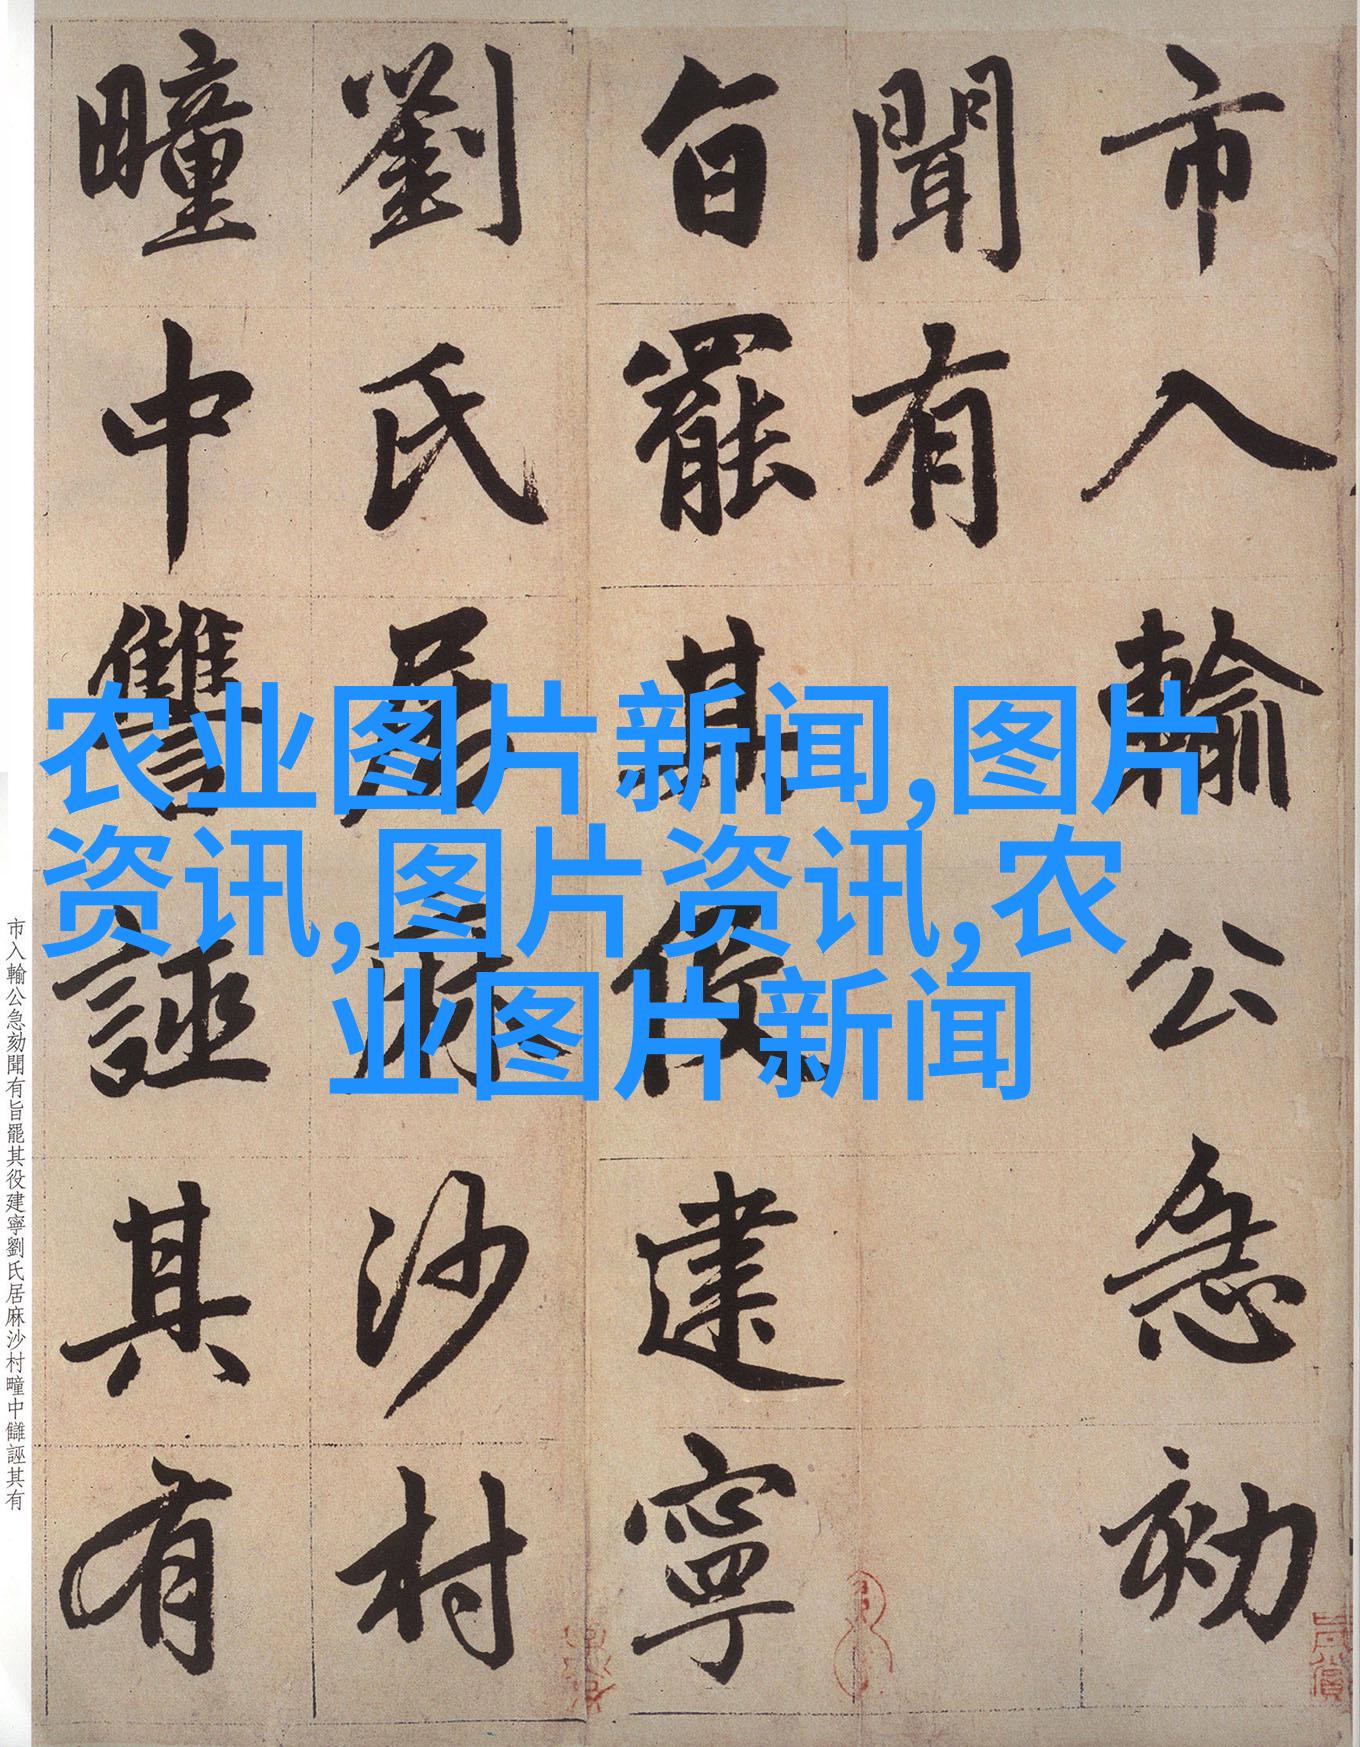 市入輸公急劾
聞有
旨罷其役建寧
劉氏居麻沙村
疃中讐誣其有
农业图片新闻,图片
资讯,图片资讯,农
业图片新闻
市入輸公急劾聞有旨罷其役建寧劉氏居麻沙村疃中讎誣其有